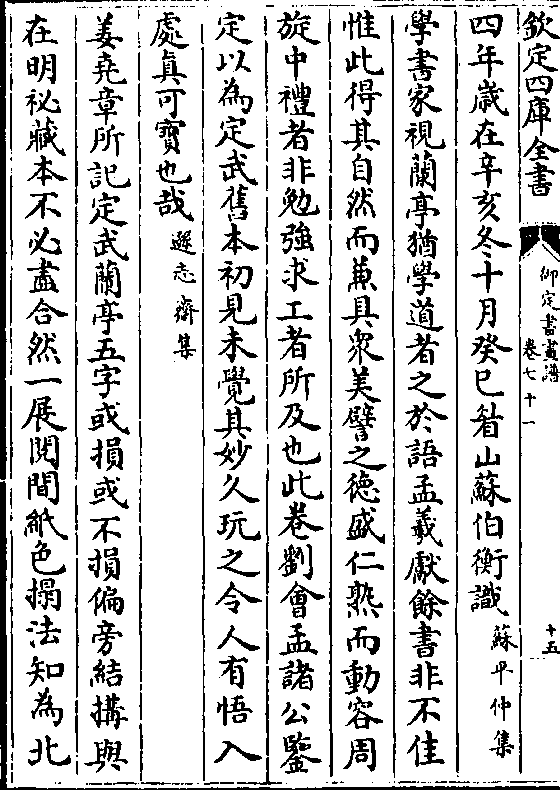 欽定四庫全書
御定書畫譜
卷七十一
十五
四年歲在辛亥冬十月癸巳眉山蘇伯衡識蘇平仲集
學書家視蘭亭猶學道者之於語孟羲獻餘書非不佳
惟此得其自然而兼具衆美譬之徳盛仁熟而動容周
旋中禮者非勉強求工者所及也此卷劉會孟諸公鑒
定以為定武舊本初見未覺其妙久玩之令人有悟入
處真可寶也哉遜志齋集
姜堯章所記定武蘭亭五字或損或不損偏旁結搆與
在明祕藏本不必盡合然一展閱間紙色搨法知為北